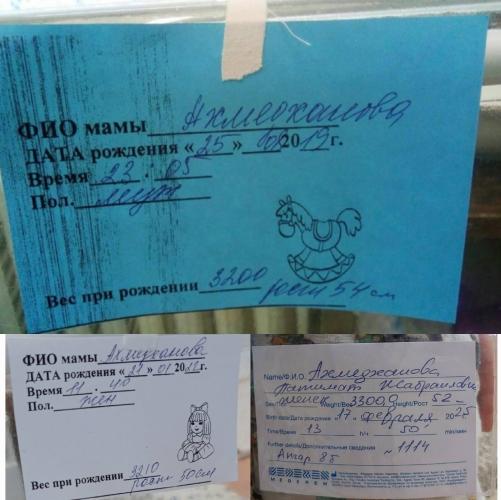 ФИО мамы Ахмедханова
ДАТА рождения «25» 2019г.
Время 23 . 05
Пол. муж
Вес при рождении 3200 рост 54 см
ФИО мамы Ахмедханова
ДАТА рождения «27» 01 г.
Время 11 . 40
Пол. жен
Вес при рождении 3210
рост 50см
Name/Ф.И.О. Ахмедханова
Патимат
женск Weight/Вес 3300g Height/Рост 52-
Birth date/Дата рождения "17" февраля 2025
Time/Время 13 h/ч 50 min/мин
Further details/Дополнительные сведения ~1114
Апгар 85
MEDEREN